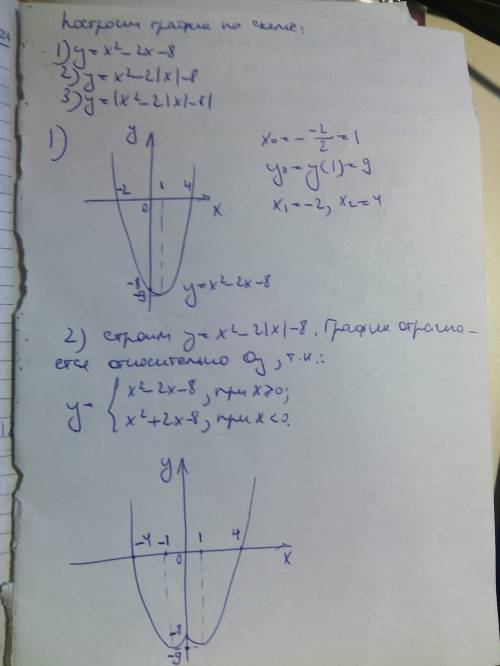 Построим график по схеме:
1) y = x² - 2x - 8
2) y = x² - 2|x| - 8
3) y = |x² - 2|x| - 8|
1)
y
x₀ = - -2/2 = 1
y₀ = y(1) = 9
x₁ = -2, x₂ = 4
-2 1 4
0 x
-8
-9
y = x² - 2x - 8
2) строим y = x² - 2|x| - 8. График отража-
ется относительно Oy, т.к.:
y = { x² - 2x - 8, при x ≥ 0;
x² + 2x - 8, при x < 0.
y
-4 -1 1 4
0 x
-8
-9